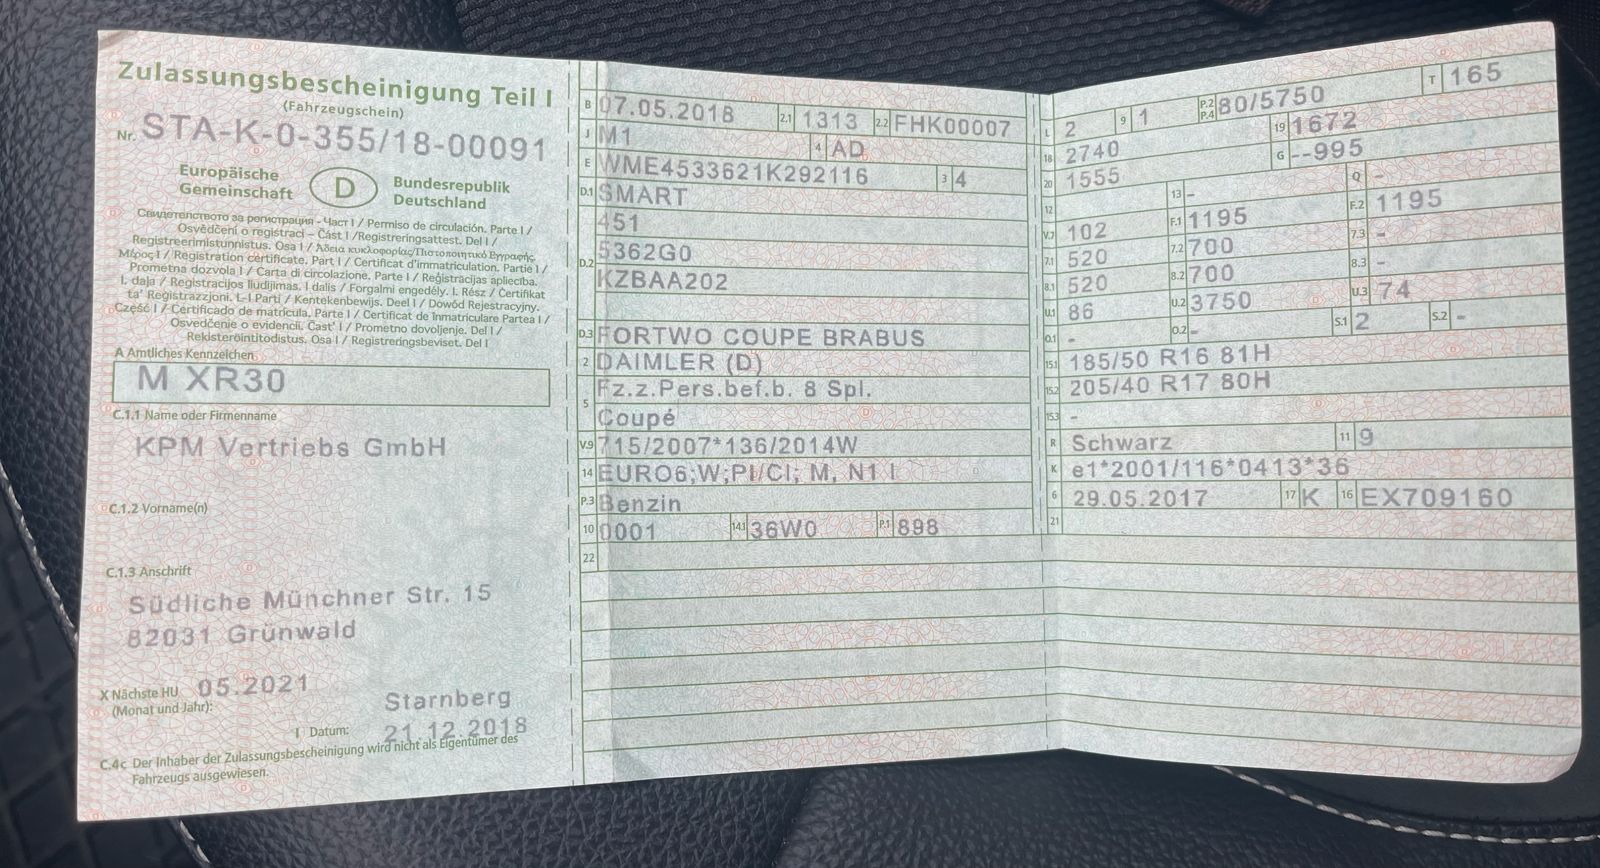 Zulassungsbescheinigung Teil I
(Fahrzeugschein)
Nr. STA-K-0-355/18-00091
Europäische Gemeinschaft
D
Bundesrepublik Deutschland
Свидетелството за регистрация - Част I / Permiso de circulación. Parte I /
Osvědčení o registraci – Část I / Registreringsattest. Del I /
Registreerimistunnistus. Osa I / Άδεια κυκλοφορίας/Πιστοποιητικό Εγγραφής.
Μέρος I / Registration certificate. Part I / Certificat d'immatriculation. Partie I /
Prometna dozvola I / Carta di circolazione. Parte I / Reģistrācijas apliecība.
I. daļa / Registracijos liudijimas. I dalis / Forgalmi engedély. I. Rész / Ċertifikat
ta' Reġistrazzjoni. L-I Parti / Kentekenbewijs. Deel I / Dowód Rejestracyjny.
Część I / Certificado de matrícula. Parte I / Certificat de Inmatriculare Partea I /
Osvedčenie o evidencii. Časť I / Prometno dovoljenje. Del I /
Rekisteröintitodistus. Osa I / Registreringsbeviset. Del I
A Amtliches Kennzeichen
M XR30
C.1.1 Name oder Firmenname
KPM Vertriebs GmbH
C.1.2 Vorname(n)
C.1.3 Anschrift
Südliche Münchner Str. 15
82031 Grünwald
X Nächste HU 05.2021
(Monat und Jahr):
Starnberg
I Datum: 21.12.2018
C.4c Der Inhaber der Zulassungsbescheinigung wird nicht als Eigentümer des
Fahrzeugs ausgewiesen.
B 07.05.2018 2.1 1313 2.2 FHK00007
J M1 4 AD
E WME4533621K292116 3 4
D.1 SMART
451
D.2 5362G0
KZBAA202
D.3 FORTWO COUPE BRABUS
2 DAIMLER (D)
5 Fz.z.Pers.bef.b. 8 Spl.
Coupé
V.9 715/2007*136/2014W
14 EURO6;W;PI/CI; M, N1 I
P.3 Benzin
10 0001 14.1 36W0 P.1 898
22
L 2 9 1 P.2 P.4 80/5750 T 165
18 2740 19 1672
20 1555 G --995
12 13 - Q -
V.7 102 F.1 1195 F.2 1195
7.1 520 7.2 700 7.3 -
8.1 520 8.2 700 8.3 -
U.1 86 U.2 3750 U.3 74
O.1 - O.2 - S.1 2 S.2 -
15.1 185/50 R16 81H
15.2 205/40 R17 80H
15.3 -
R Schwarz 11 9
K e1*2001/116*0413*36
6 29.05.2017 17 K 16 EX709160
21